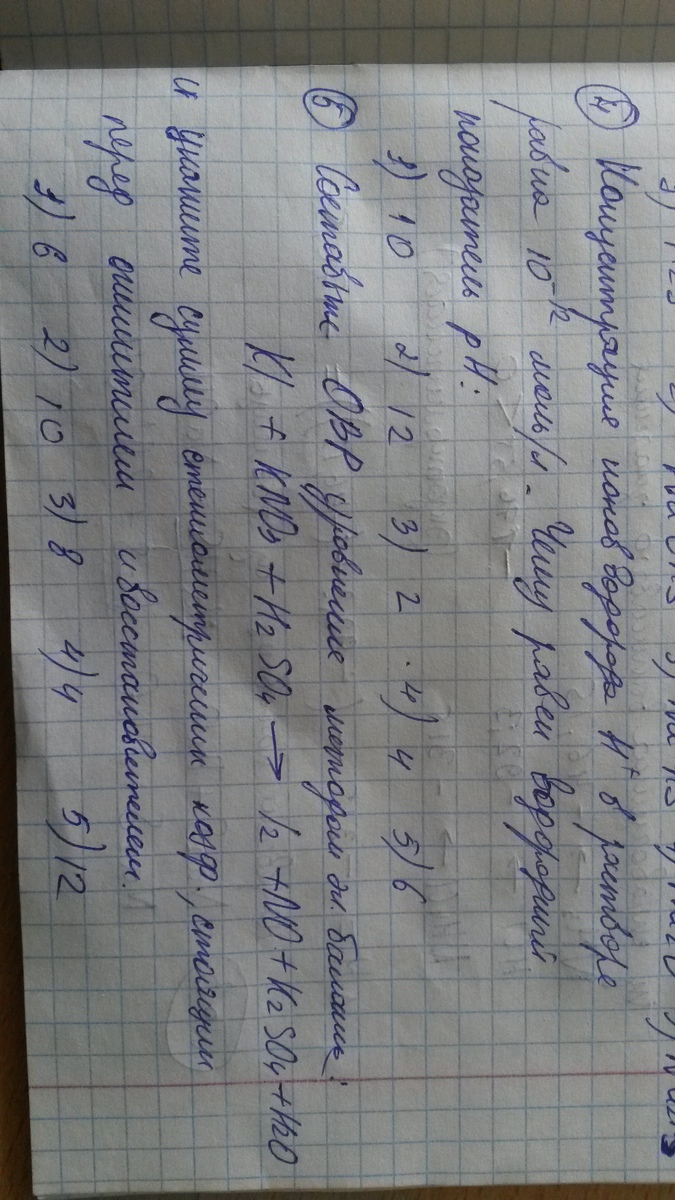 ④ Концентрация ионов водорода H⁺ в растворе
равна 10⁻¹² моль/л. Чему равен водородный
показатель pH:
1) 10 2) 12 3) 2 4) 4 5) 6
⑤ Составьте ОВР уровнение методом эл. баланса:
KI + KNO₃ + H₂SO₄ → I₂ + NO + K₂SO₄ + H₂O
и укажите сумму стехиометрических коэф., стоящих
перед окислителем и восстановителем.
1) 6 2) 10 3) 8 4) 4 5) 12